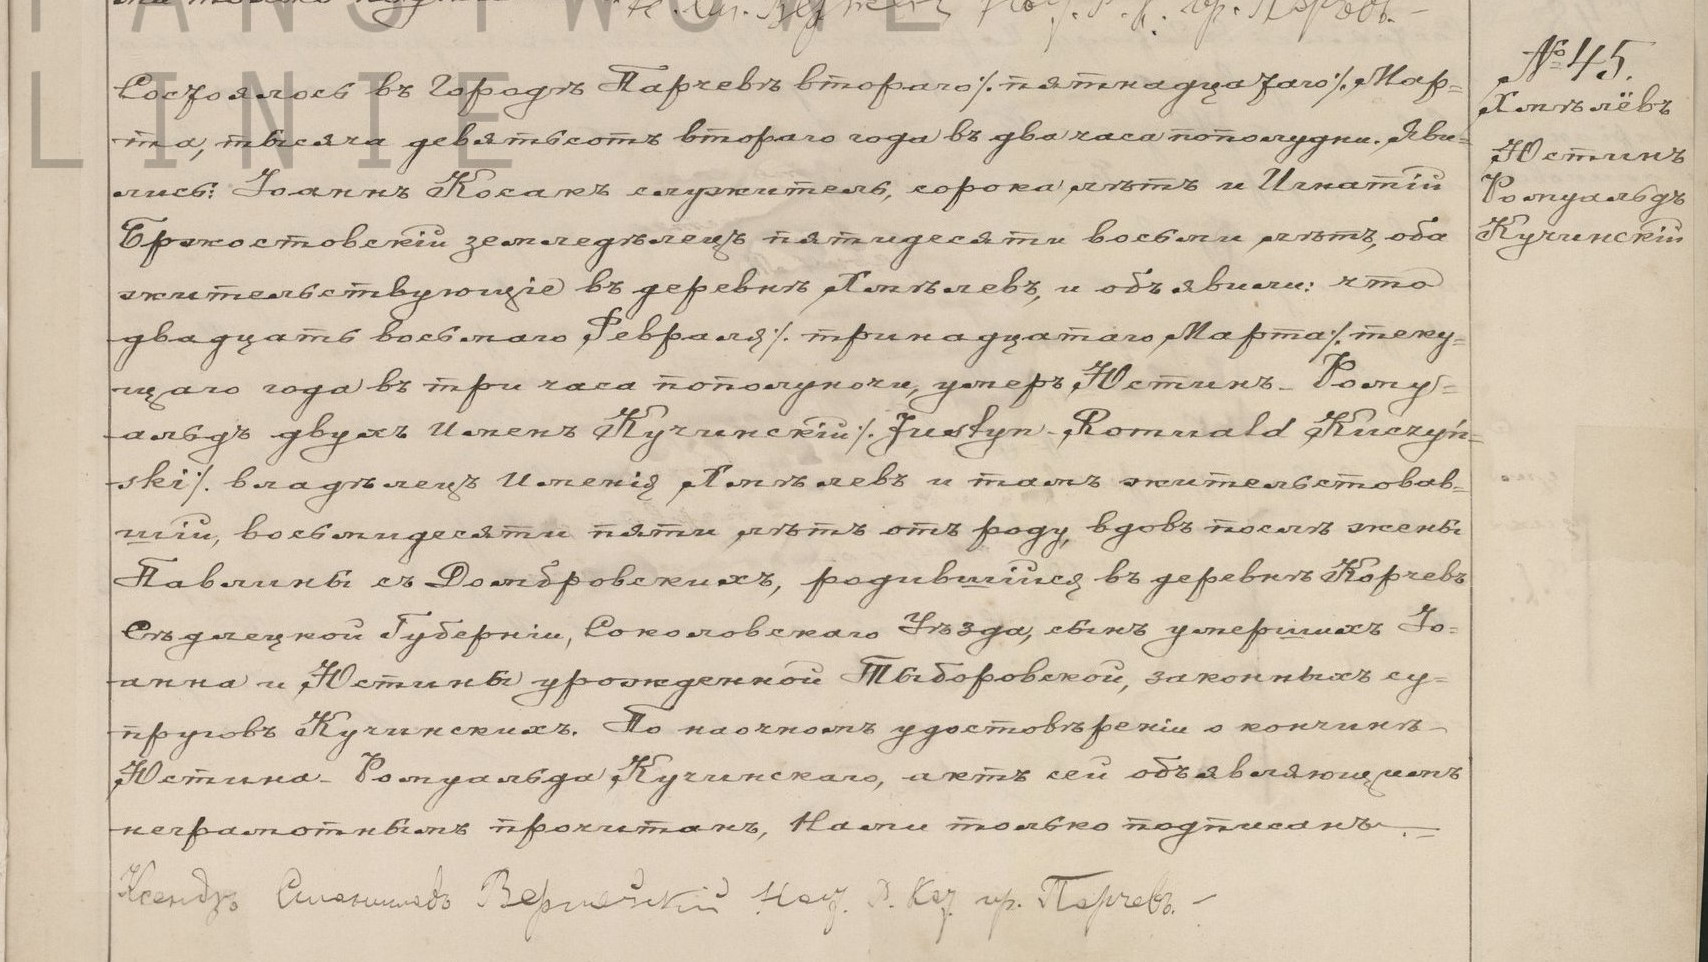 PAŃSTWOWE
LINIE
Состоялось въ Городѣ Парчевѣ втораго /:пятнадцатаго:/ Мар=
та, тысяча девятьсотъ втораго года въ два часа пополудни. Яви=
лись: Іоаннъ Косакъ служитель, сорока лѣтъ и Игнатій
Бржостовскій земледѣлецъ пятидесяти восьми лѣтъ, оба
жительствующіе въ деревнѣ Хмѣлевъ, и объявили: что
двадцать восьмаго Февраля /:тринадцатаго Марта:/ теку=
щаго года въ три часа пополуночи, умеръ Юстинъ-Рому=
альдъ двухъ именъ Кучинскій /:Justyn-Romuald Kuczyń=
ski:/ владѣлецъ Именія Хмѣлевъ и тамъ жительствовав=
шій, восьмидесяти пяти лѣтъ отъ роду, вдовъ послѣ жены
Павлины съ Домбровскихъ, родившійся въ деревнѣ Корчевъ
Сѣдлецкой Губерніи, Соколовскаго Уѣзда, сынъ умершихъ Іо=
анна и Юстины урожденной Тыборовской, законныхъ су=
пруговъ Кучинскихъ. По наочномъ удостовѣреніи о кончинѣ
Юстина-Ромуальда Кучинскаго, актъ сей объявляющимъ
неграмотнымъ прочитанъ, Нами только подписанъ.
Ксендзъ Станиславъ пр. Парчевъ.
№ 45.
Хмѣлёвъ
Юстинъ
Ромуальдъ
Кучинскій